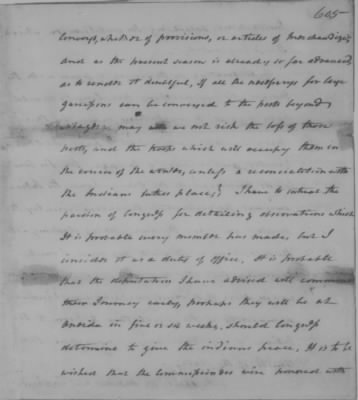 605
Convoys, whether of provisions, or articles of merchandize,
and as the present season is already so far advanced
as to render it doubtful, if all the necessarys for large
garrisons can be conveyed to the posts beyond
Niagara may we not risk the loss of those
posts, and the troops which will occupy them in
the course of the winter, unless a reconciliation with
the Indians takes place? I have to intreat the
pardon of Congress for detailing observations which
It is probable every member has made, but I
consider it as a duty of office. It is probable
that the deputation I have advised will commence
their Journey early, perhaps they will be at
Oneida in five or six weeks, should Congress
determine to give the indians peace, It is to be
wished that the Commissioners were honored with